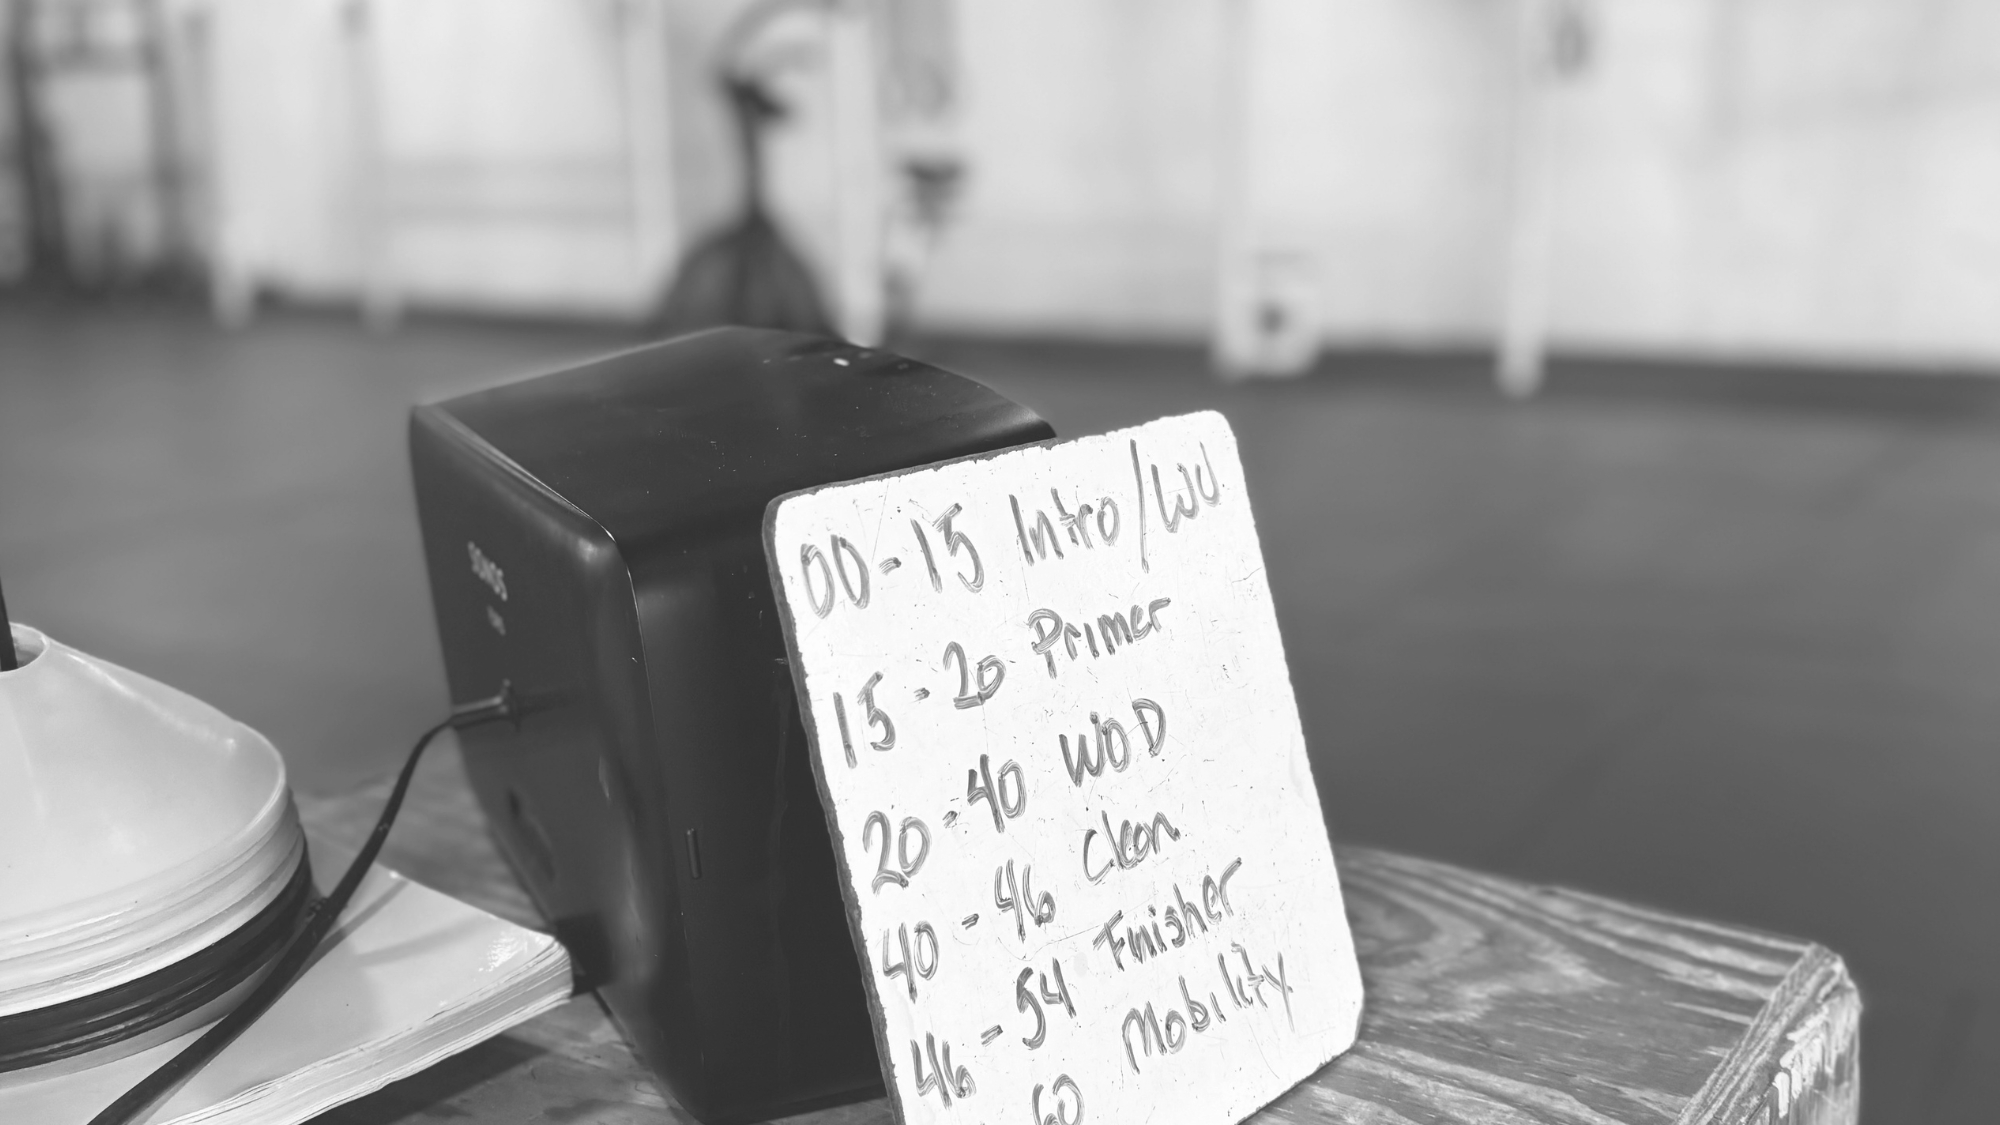 SONOS
00-15 Intro/WU
15-20 Primer
20-40 WOD
40-46 Clean
46-54 Finisher
60 Mobility